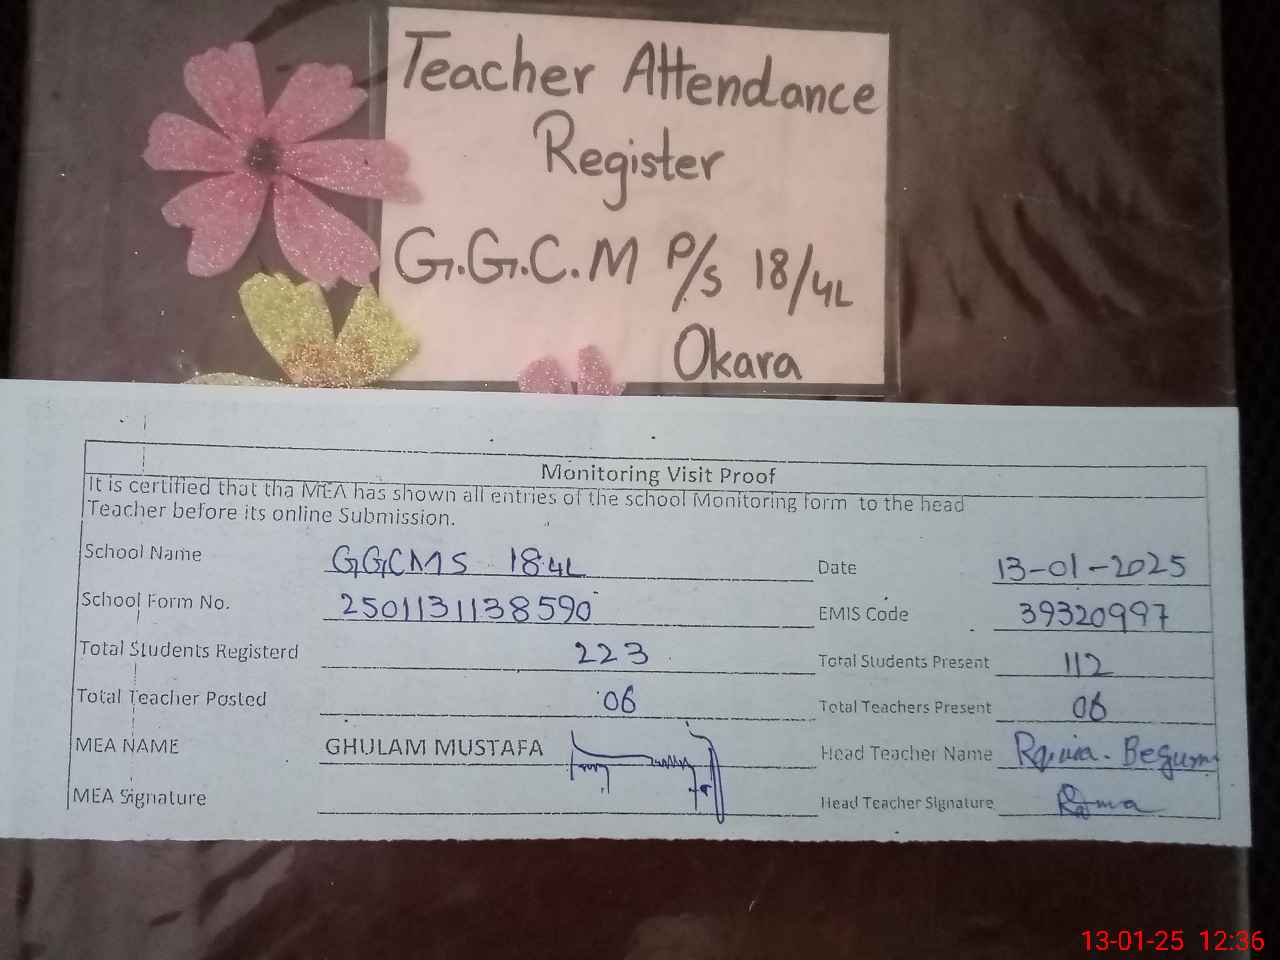 Teacher Attendance
Register
G.G.C.M P/S 18/4L
Okara
Monitoring Visit Proof
It is certified that tha MEA has shown all entries of the school Monitoring form to the head
Teacher before its online Submission.
School Name GGCMS 18.4L Date 13-01-2025
School Form No. 2501131138590 EMIS Code 39320997
Total Students Registerd 223 Total Students Present 112
Total Teacher Posted 06 Total Teachers Present 06
MEA NAME GHULAM MUSTAFA Head Teacher Name Begum
MEA Signature Head Teacher Signature
13-01-25 12:36